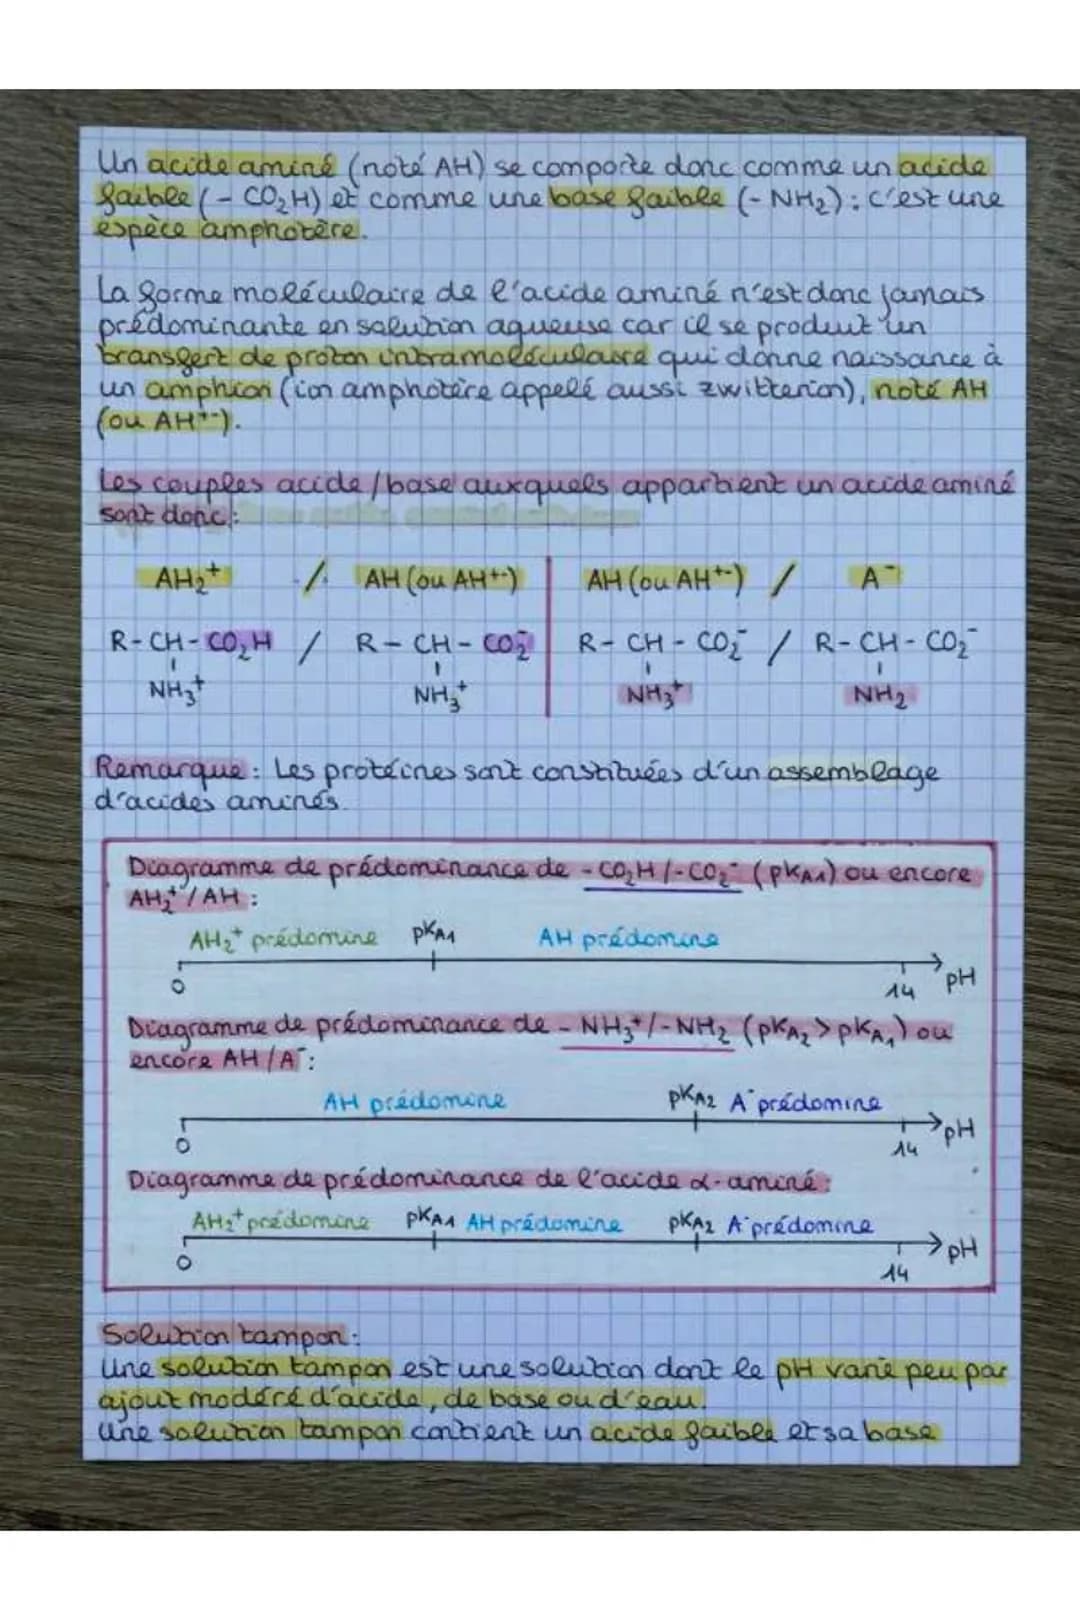 Un acide aminé (noté AH) se comporte donc comme un acide
faible (- CO₂H) et comme une base faible (- NH₂) : c'est une
espèce amphotère.
La forme moléculaire de l'acide aminé n'est donc jamais
prédominante en solution aqueuse car il se produit un
transfert de proton intramoléculaire qui donne naissance à
un amphion (ion amphotère appelé aussi zwitterion), noté AH
(ou AH⁺⁻).
Les couples acide / base auxquels appartient un acide aminé
sont donc :
AH₂⁺ / AH (ou AH⁺⁻) AH (ou AH⁺⁻) / A⁻
R - CH - CO₂H / R - CH - CO₂⁻ R - CH - CO₂⁻ / R - CH - CO₂⁻
NH₃⁺ NH₃⁺ NH₃⁺ NH₂
Remarque : Les protéines sont constituées d'un assemblage
d'acides aminés.
Diagramme de prédominance de - CO₂H / - CO₂⁻ (pKA1) ou encore
AH₂⁺ / AH :
AH₂⁺ prédomine pKA1 AH prédomine
0 14 pH
Diagramme de prédominance de - NH₃⁺ / - NH₂ (pKA₂ > pKA₁) ou
encore AH / A⁻ :
AH prédomine pKA2 A⁻ prédomine
0 14 pH
Diagramme de prédominance de l'acide α-aminé :
AH₂⁺ prédomine pKA1 AH prédomine pKA2 A⁻ prédomine
0 14 pH
Solution tampon :
Une solution tampon est une solution dont le pH varie peu par
ajout modéré d'acide, de base ou d'eau.
Une solution tampon contient un acide faible et sa base